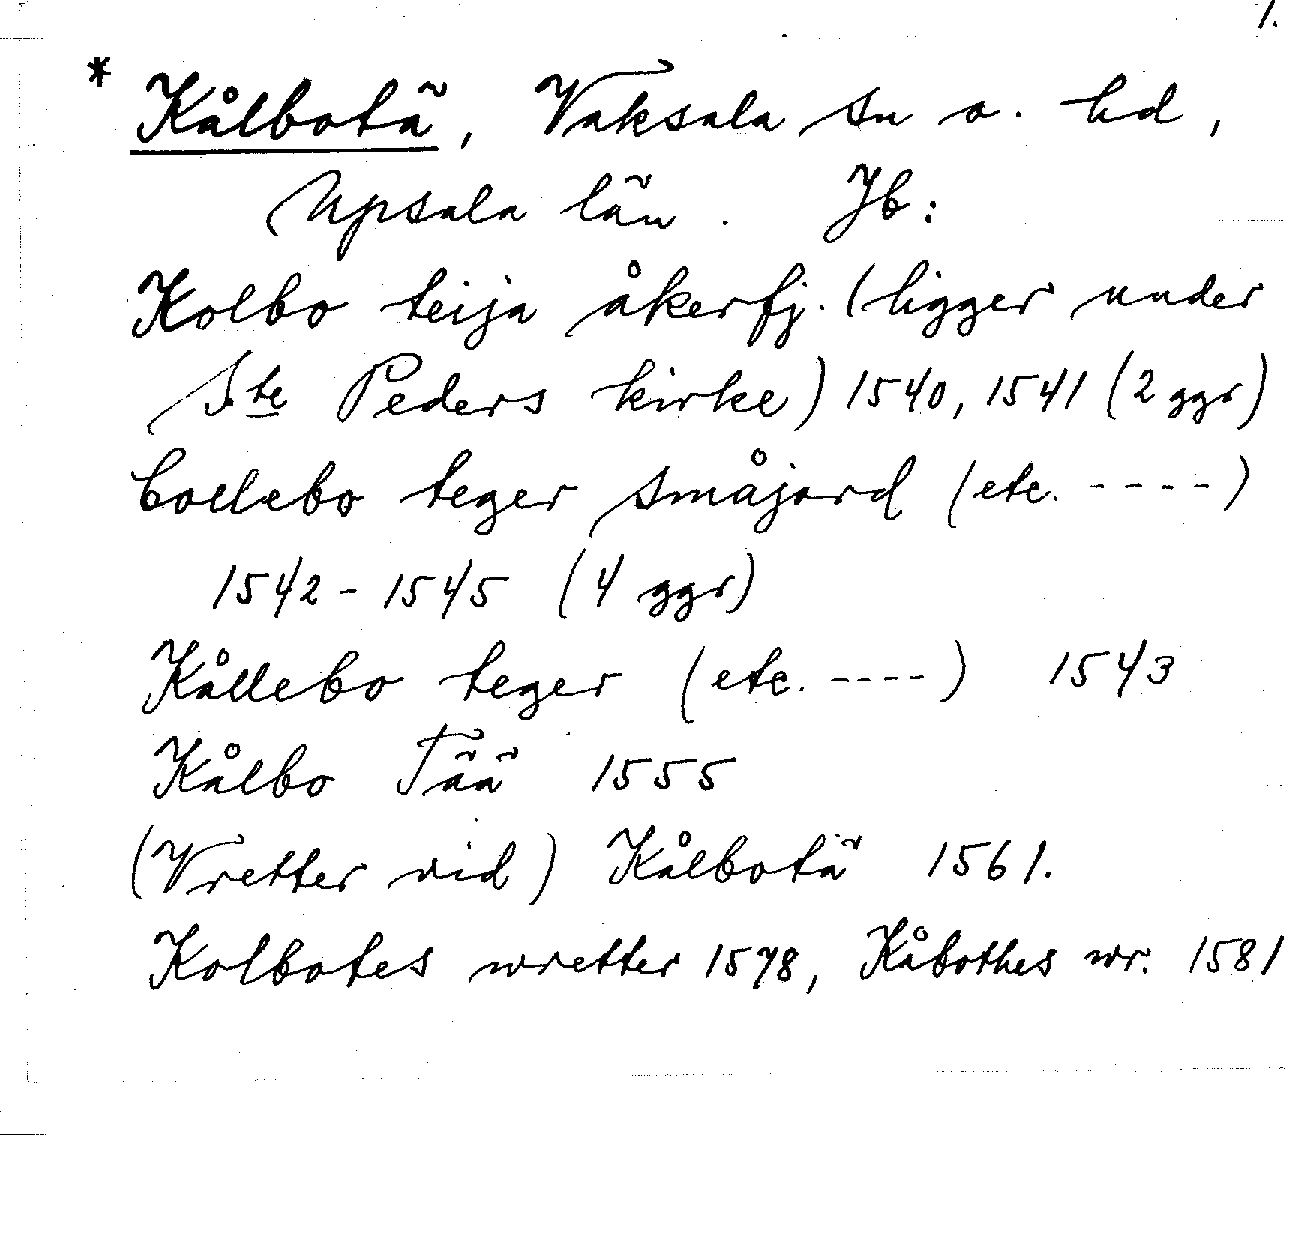 1.
* Kålbotä, Vaksala sn o. hd,
Upsala län. Jb:
Kolbo teija åkerfj. (ligger under
Ste Peders kirke) 1540, 1541 (2 ggr)
Collebo teger småjord (etc. ----)
1542 - 1545 (4 ggr)
Kållebo teger (etc. ----) 1543
Kålbo Tää 1555
(Vretter vid) Kålbotä 1561.
Kolbotes wretter 1578, Kåbothes wr. 1581